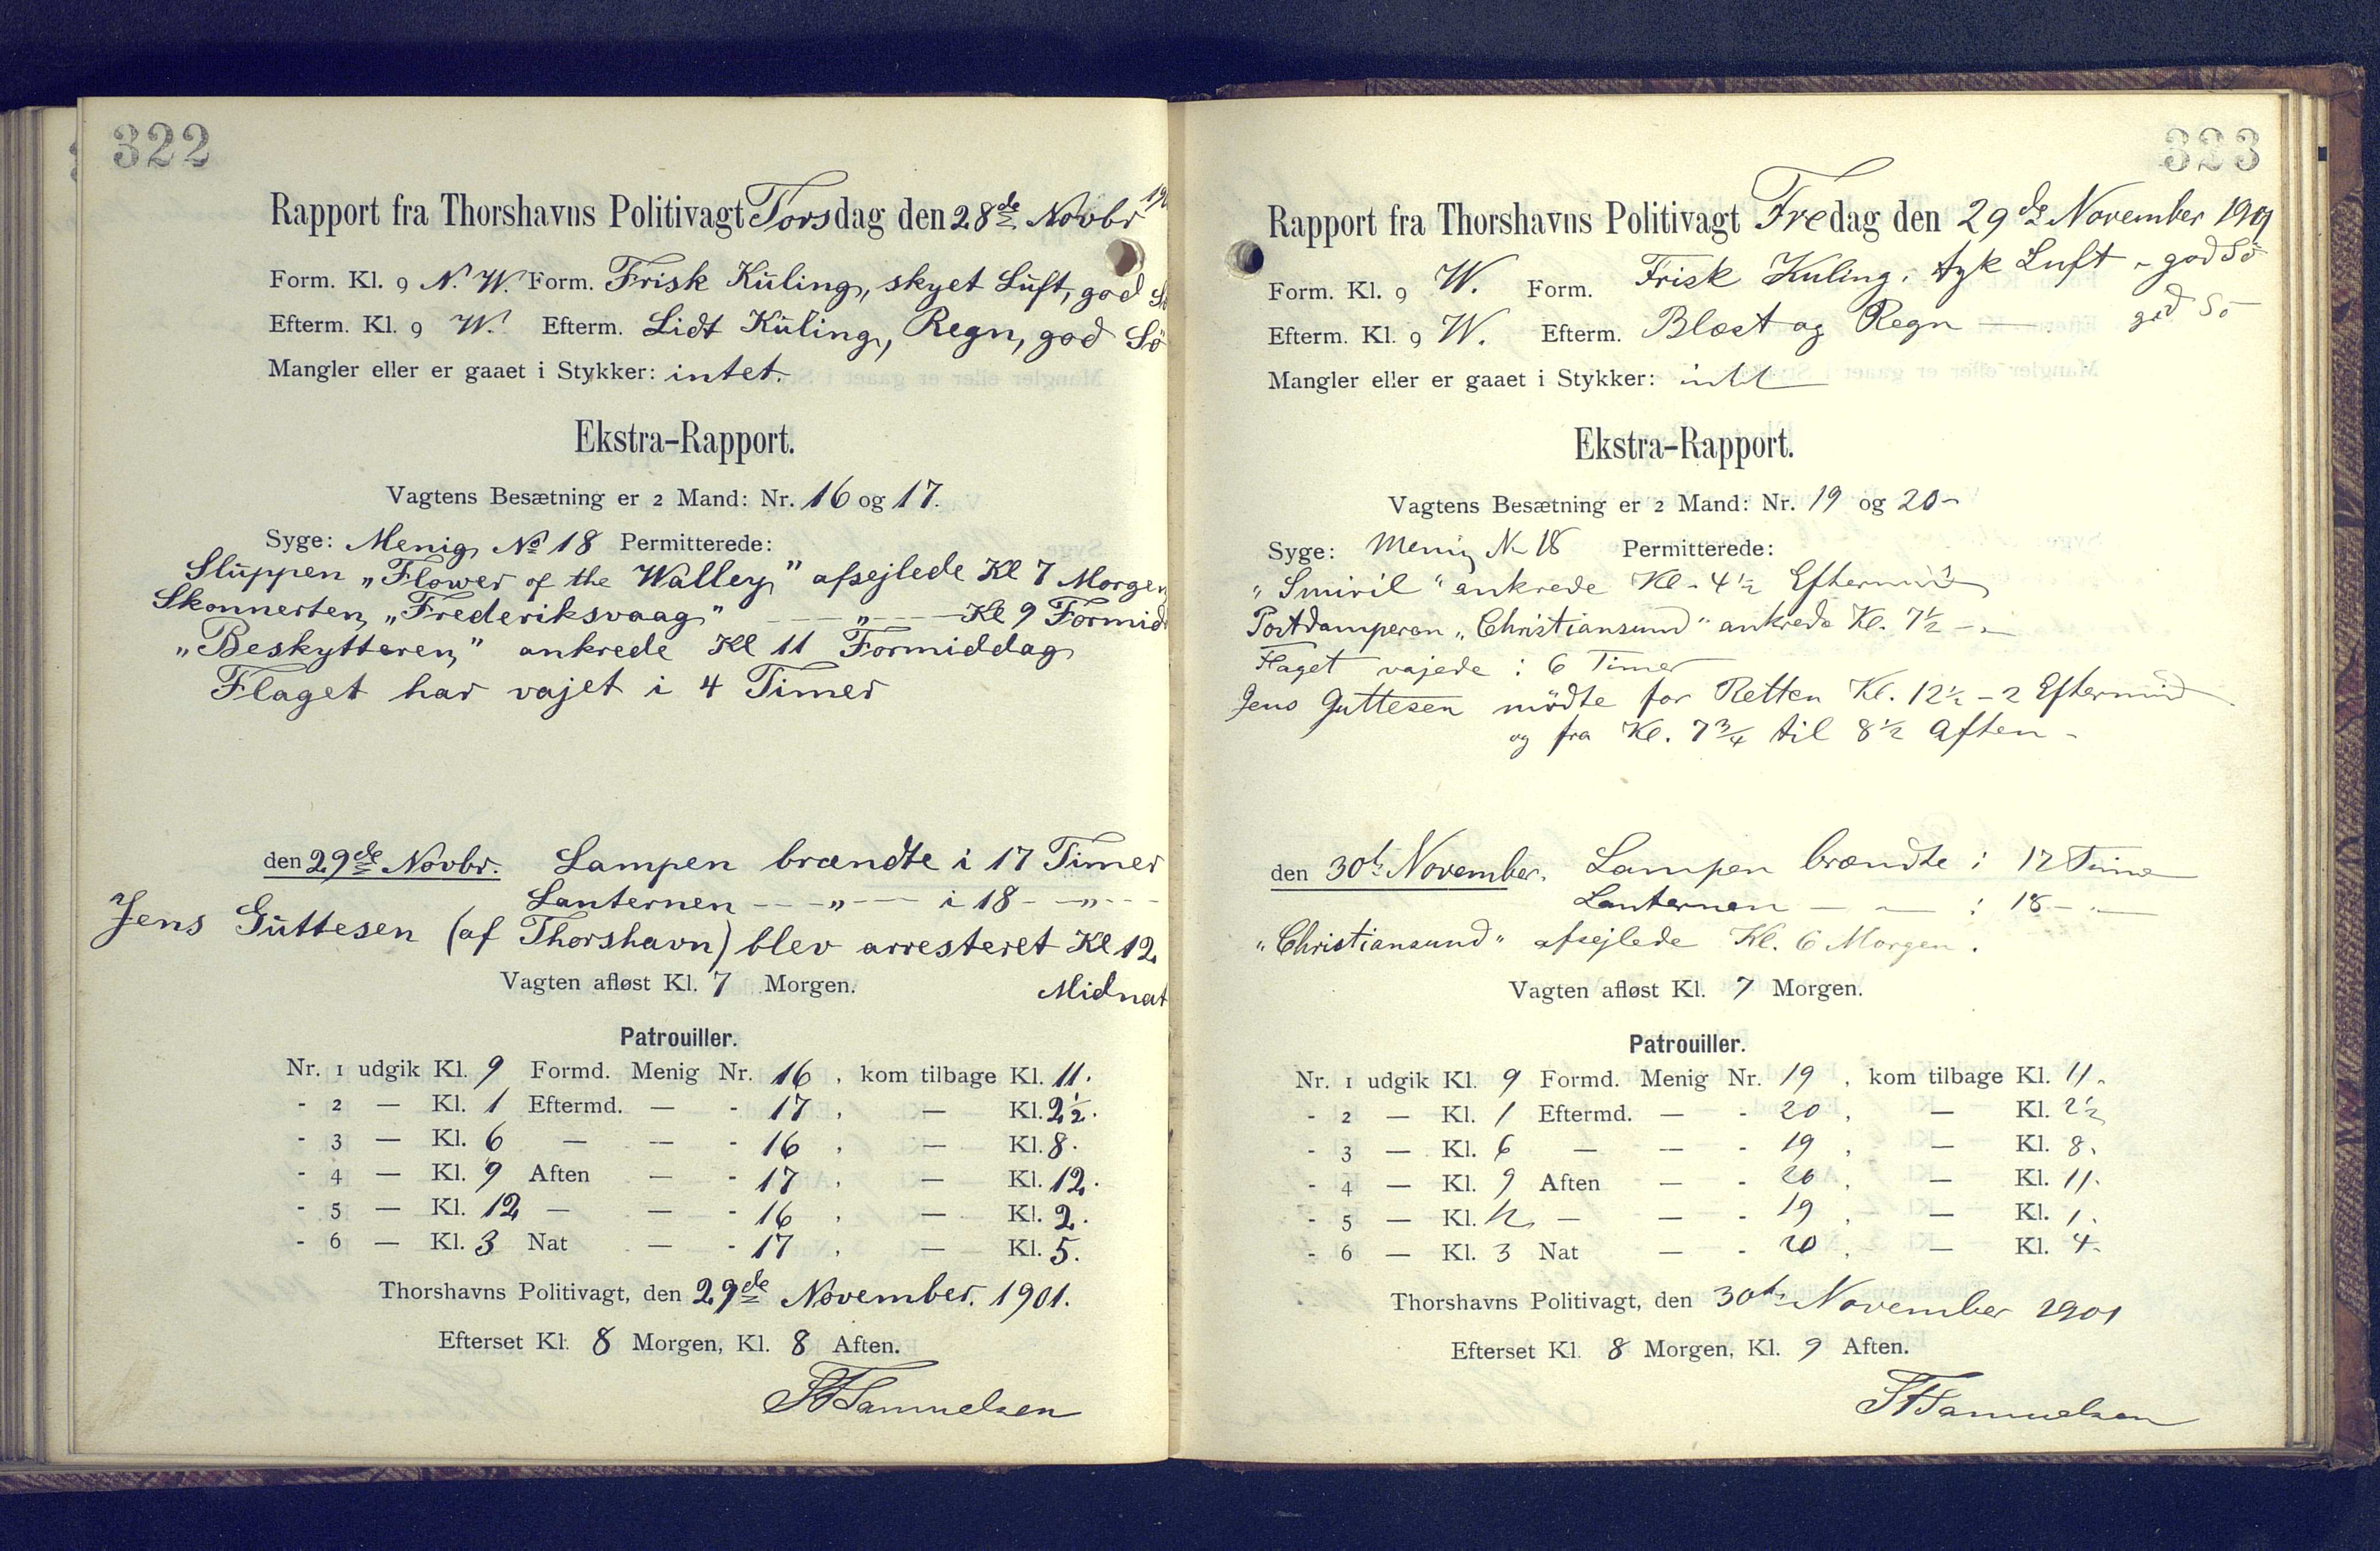 322
Rapport fra Thorshavns Politivagt Torsdag den 28de Novbr 190
Form. Kl. 9 N. W. Form. Frisk Kuling, skyet Luft, god
Efterm. Kl. 9 W. Efterm. Lidt Kuling, Regn, god Sö
Mangler eller er gaaet i Stykker: intet.
Ekstra-Rapport.
Vagtens Besætning er 2 Mand: Nr. 16 og 17.
Syge: Menig No 18 Permitterede:
Sluppen „Flower of the Walley" afsejlede Kl 7 Morgen
Skonnerten „Frederiksvaag" — „ — Kl 9 Formid
„Beskytteren" ankrede Kl 11 Formiddag
Flaget har vajet i 4 Timer
den 29de Novbr. Lampen brændte i 17 Timer
Lanternen — „ — i 18 - „ -
Jens Guttesen (af Thorshavn) blev arresteret Kl 12
Vagten afløst Kl. 7 Morgen. Midnat
Patrouiller.
Nr. 1 udgik Kl. 9 Formd. Menig Nr. 16, kom tilbage Kl. 11.
- 2 — Kl. 1 Eftermd. — - 17, — Kl. 2½.
- 3 — Kl. 6 — — - 16, — Kl. 8.
- 4 — Kl. 9 Aften — - 17, — Kl. 12.
- 5 — Kl. 12 — — - 16, — Kl. 2.
- 6 — Kl. 3 Nat — - 17, — Kl. 5.
Thorshavns Politivagt, den 29de November. 1901.
Efterset Kl. 8 Morgen, Kl. 8 Aften.
Samuelsen
323
Rapport fra Thorshavns Politivagt Fredag den 29de November 1901
Form. Kl. 9 W. Form. Frisk Kuling, tyk Luft - god Sö
Efterm. Kl. 9 W. Efterm. Blæst og Regn — god Sö
Mangler eller er gaaet i Stykker: intet
Ekstra-Rapport.
Vagtens Besætning er 2 Mand: Nr. 19 og 20-
Syge: Menig N- 18 Permitterede:
„Smiril" ankrede Kl. 4½ Eftermid
Postdamperen „Christiansund" ankrede Kl. 7½ - „ -
Flaget vajede i 6 Timer
Jens Guttesen mödte for Retten Kl. 12½ - 2 Eftermid
og fra Kl. 7¾ til 8½ Aften -
den 30te November. Lampen brændte i 17 Timer
Lanternen — „ — i 18 - „ -
„Christiansund" afsejlede Kl. 6 Morgen.
Vagten afløst Kl. 7 Morgen.
Patrouiller.
Nr. 1 udgik Kl. 9 Formd. Menig Nr. 19, kom tilbage Kl. 11.
- 2 — Kl. 1 Eftermd. — - 20, — Kl. 2½
- 3 — Kl. 6 — — - 19, — Kl. 8.
- 4 — Kl. 9 Aften — - 20, — Kl. 11.
- 5 — Kl. 12 — — - 19, — Kl. 1.
- 6 — Kl. 3 Nat — - 20, — Kl. 4.
Thorshavns Politivagt, den 30te November 1901
Efterset Kl. 8 Morgen, Kl. 9 Aften.
Samuelsen